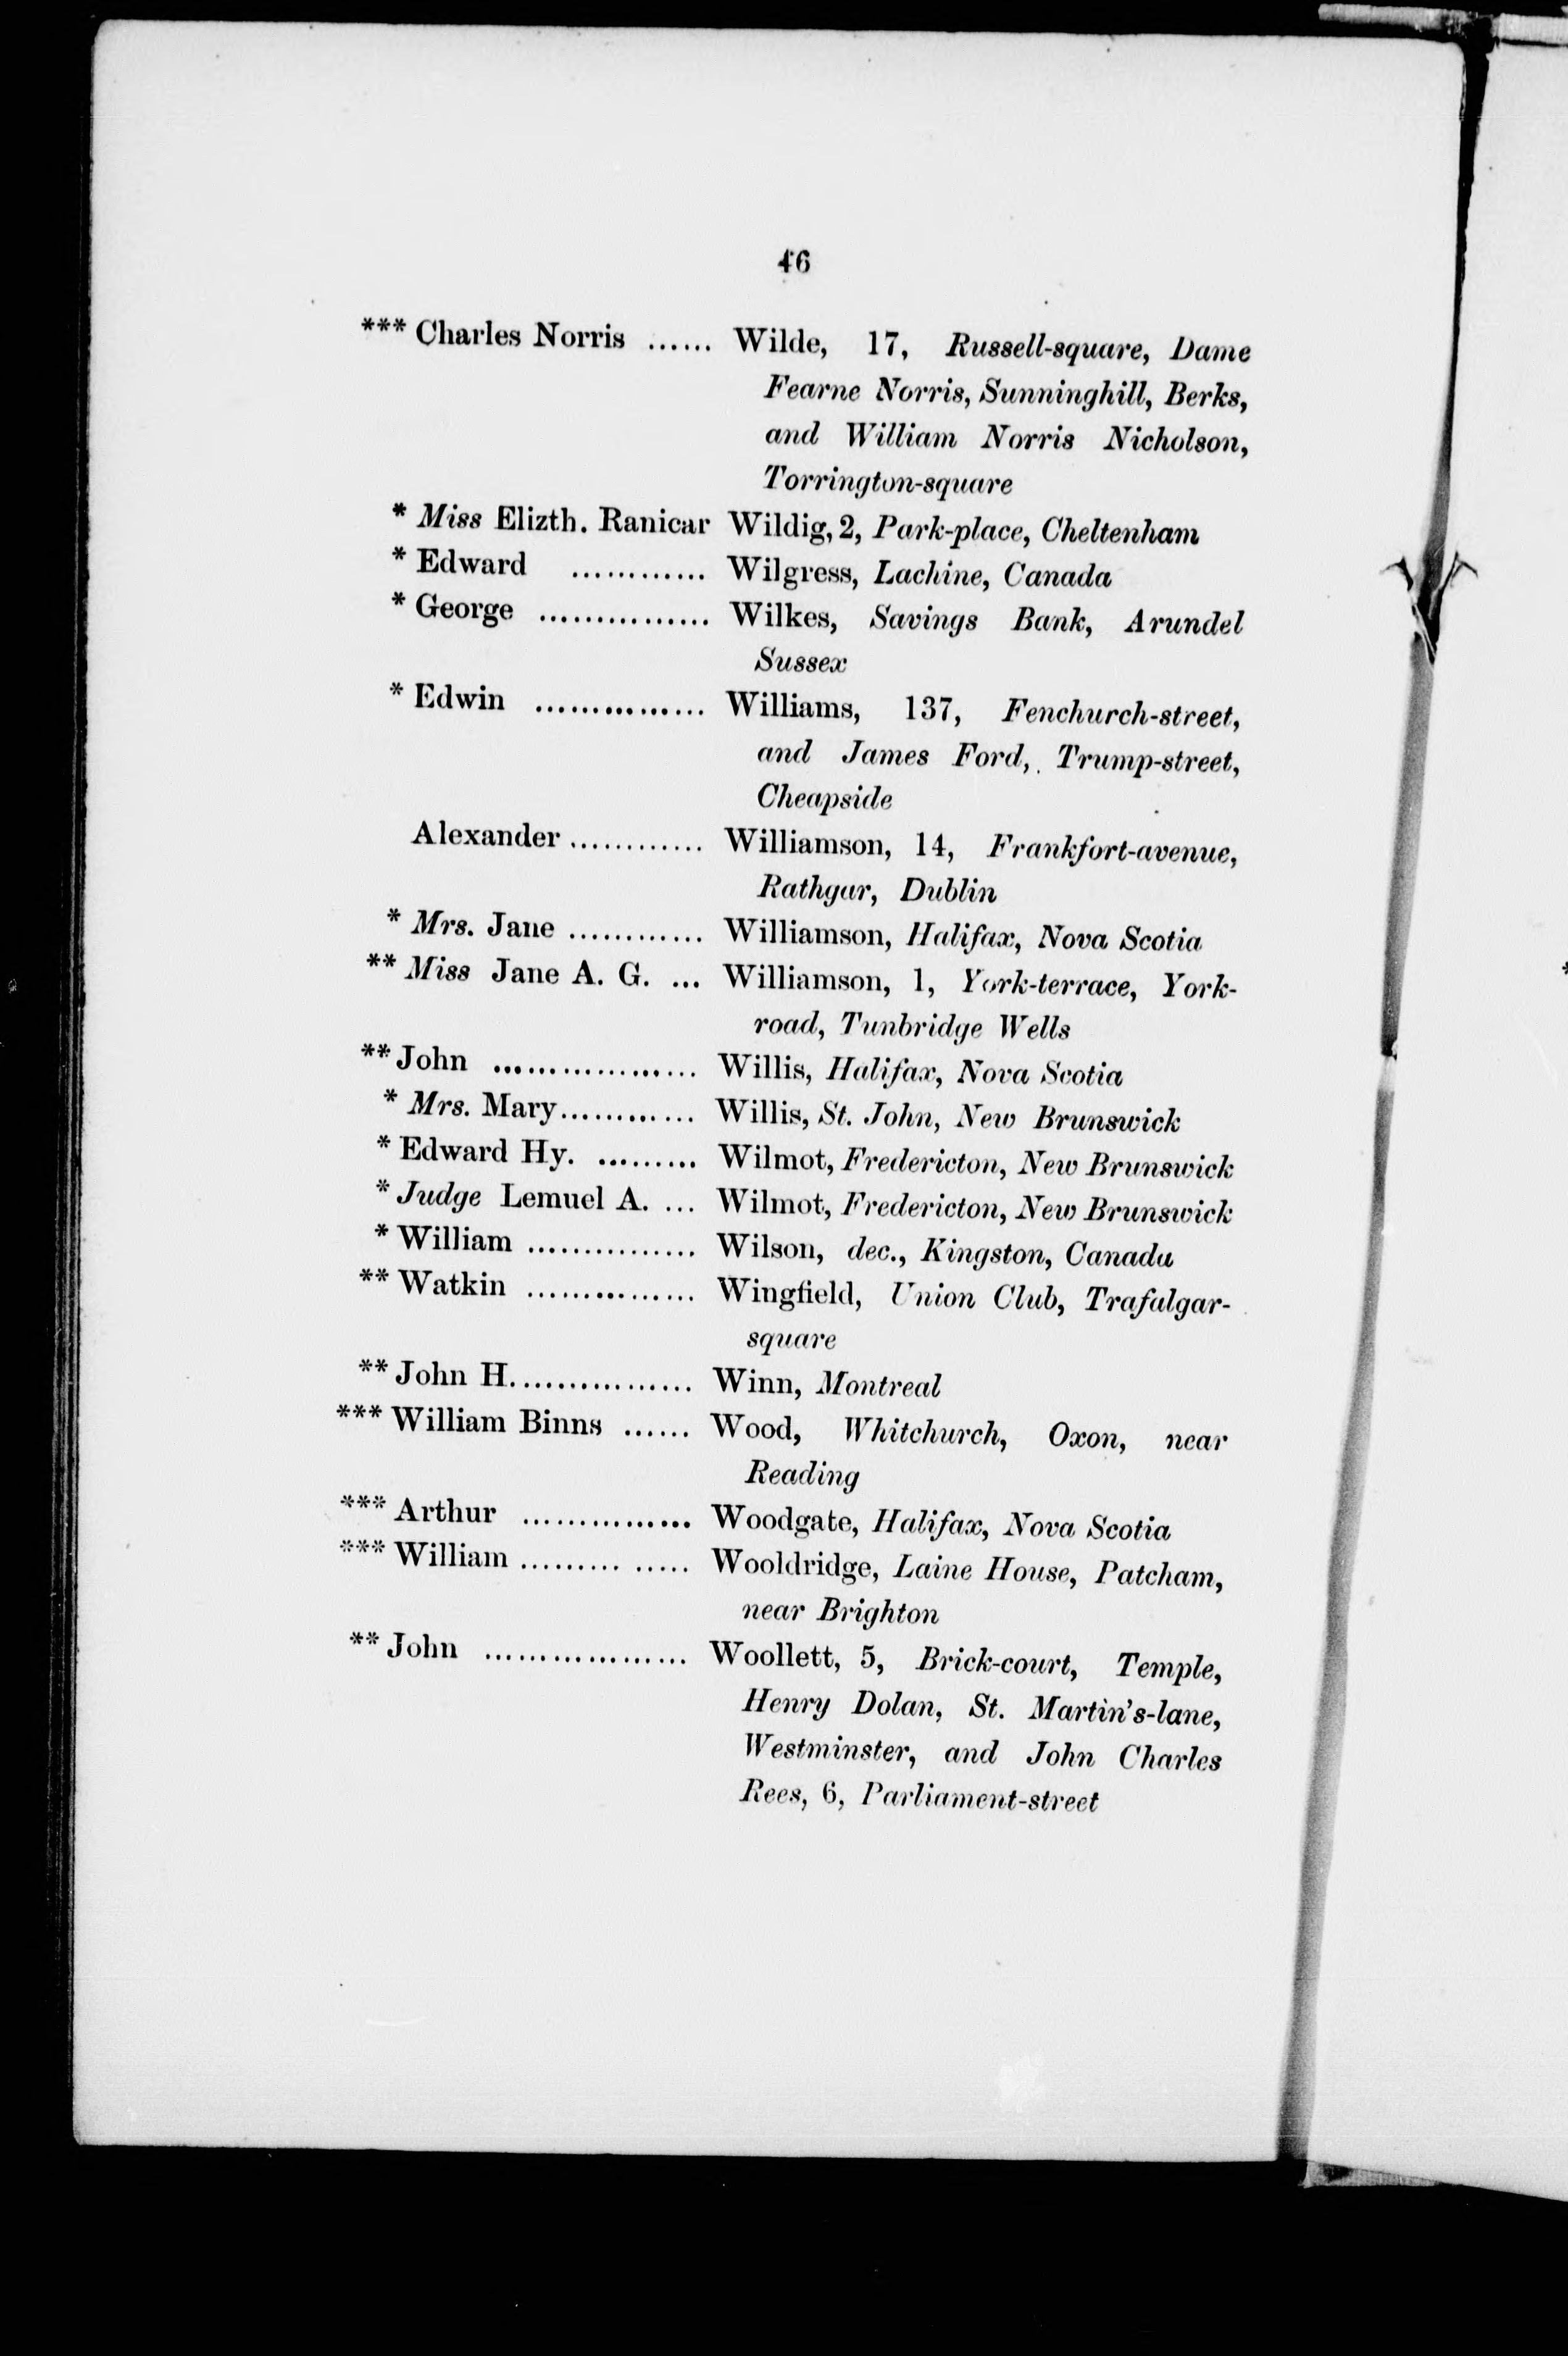 46
*** Charles Norris ...... Wilde, 17, Russell-square, Dame
Fearne Norris, Sunninghill, Berks,
and William Norris Nicholson,
Torrington-square
* Miss Elizth. Ranicar Wildig, 2, Park-place, Cheltenham
* Edward ............ Wilgress, Lachine, Canada
* George ............... Wilkes, Savings Bank, Arundel
Sussex
* Edwin ............... Williams, 137, Fenchurch-street,
and James Ford, Trump-street,
Cheapside
Alexander ............ Williamson, 14, Frankfort-avenue,
Rathgar, Dublin
* Mrs. Jane ............ Williamson, Halifax, Nova Scotia
** Miss Jane A. G. ... Williamson, 1, York-terrace, York-
road, Tunbridge Wells
** John .................. Willis, Halifax, Nova Scotia
* Mrs. Mary............ Willis, St. John, New Brunswick
* Edward Hy. ......... Wilmot, Fredericton, New Brunswick
* Judge Lemuel A. ... Wilmot, Fredericton, New Brunswick
* William ............... Wilson, dec., Kingston, Canada
** Watkin ............... Wingfield, Union Club, Trafalgar-
square
** John H................. Winn, Montreal
*** William Binns ...... Wood, Whitchurch, Oxon, near
Reading
*** Arthur ............... Woodgate, Halifax, Nova Scotia
*** William ......... ..... Wooldridge, Laine House, Patcham,
near Brighton
** John .................. Woollett, 5, Brick-court, Temple,
Henry Dolan, St. Martin's-lane,
Westminster, and John Charles
Rees, 6, Parliament-street